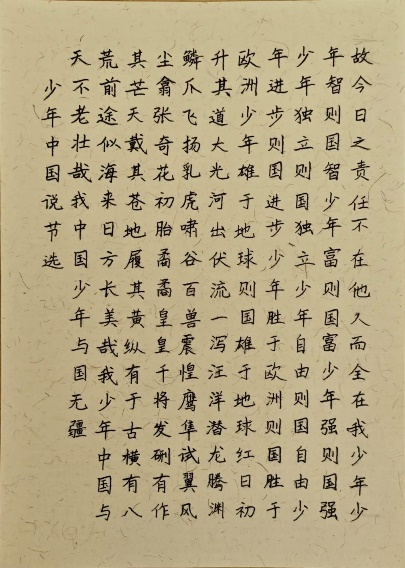 故今日之责任不在他人而全在我少年少
年智则国智少年富则国富少年强则国强
少年独立则国独立少年自由则国自由少
年进步则国进步少年胜于欧洲则国胜于
欧洲少年雄于地球则国雄于地球红日初
升其道大光河出伏流一泻汪洋潜龙腾渊
鳞爪飞扬乳虎啸谷百兽震惶鹰隼试翼风
尘翕张奇花初胎矞矞皇皇千将发硎有作
其芒天戴其苍地履其黄纵有于古横有八
荒前途似海来日方长美哉我少年中国与
天不老壮哉我中国少年与国无疆
少年中国说节选